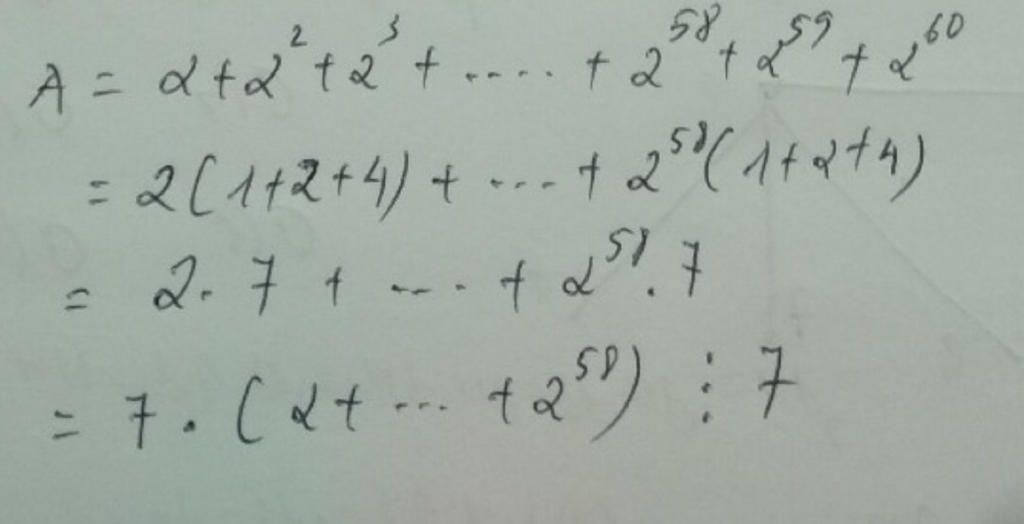 A = 2 + 2² + 2³ + ..... + 2⁵⁸ + 2⁵⁹ + 2⁶⁰
= 2(1+2+4) + ... + 2⁵⁸(1+2+4)
= 2.7 + ... + 2⁵⁸.7
= 7.(2+ ... +2⁵⁸) ⋮ 7